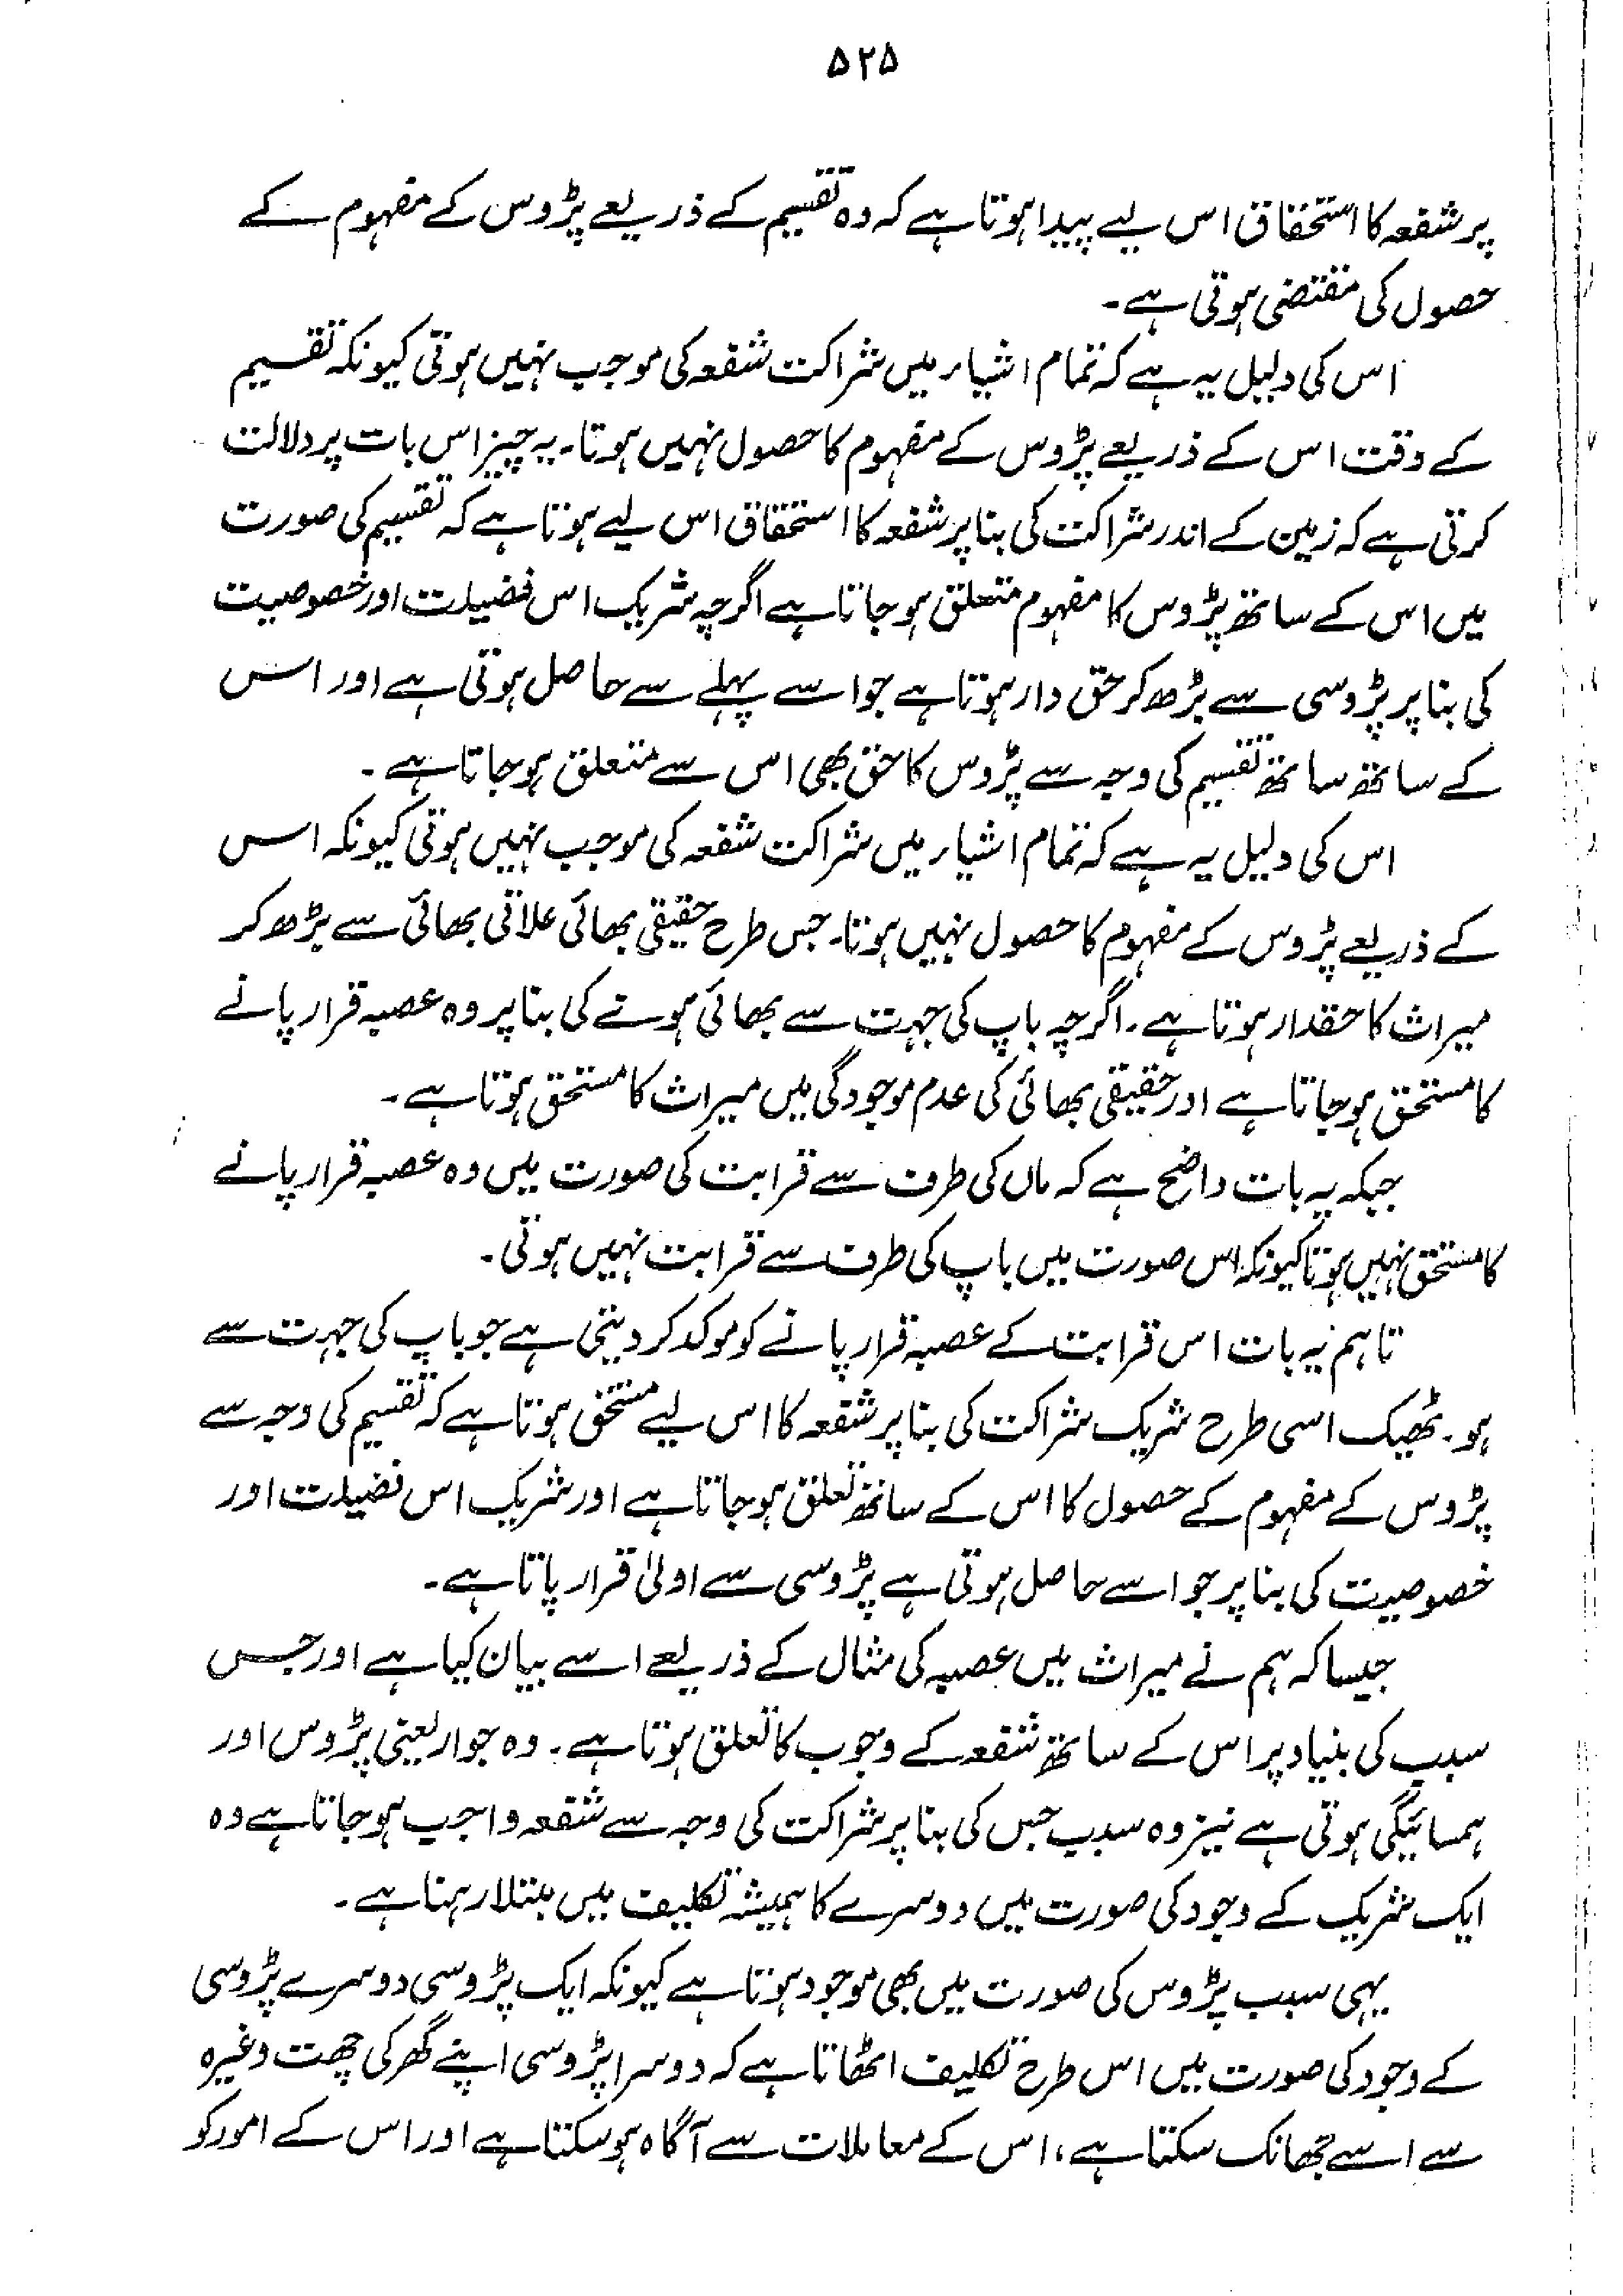 ۵۲۵
پر شفعہ کا استحقاق اس لیے پیدا ہوتا ہے کہ وہ تقسیم کے ذریعے پڑوس کے مفہوم کے
حصول کی مقتضی ہوتی ہے۔
اس کی دلیل یہ ہے کہ تمام اشیاء میں شراکت شفعہ کی موجب نہیں ہوتی کیونکہ تقسیم
کے وقت اس کے ذریعے پڑوس کے مفہوم کا حصول نہیں ہوتا۔ یہ چیز اس بات پر دلالت
کرتی ہے کہ زمین کے اندر شراکت کی بنا پر شفعہ کا استحقاق اس لیے ہوتا ہے کہ تقسیم کی صورت
میں اس کے ساتھ پڑوس کا مفہوم متعلق ہو جاتا ہے اگرچہ شریک اس فضیلت اور خصوصیت
کی بنا پر پڑوسی سے بڑھ کر حق دار ہوتا ہے جو اسے پہلے سے حاصل ہوتی ہے اور اس
کے ساتھ ساتھ تقسیم کی وجہ سے پڑوس کا حق بھی اس سے متعلق ہو جاتا ہے۔
اس کی دلیل یہ ہے کہ تمام اشیاء میں شراکت شفعہ کی موجب نہیں ہوتی کیونکہ اس
کے ذریعے پڑوس کے مفہوم کا حصول نہیں ہوتا۔ جس طرح حقیقی بھائی علاتی بھائی سے بڑھ کر
میراث کا حقدار ہوتا ہے۔ اگرچہ باپ کی جہت سے بھائی ہونے کی بنا پر وہ عصبہ قرار پانے
کا مستحق ہو جاتا ہے اور حقیقی بھائی کی عدم موجودگی میں میراث کا مستحق ہوتا ہے۔
جبکہ یہ بات واضح ہے کہ ماں کی طرف سے قرابت کی صورت میں وہ عصبہ قرار پانے
کا مستحق نہیں ہوتا کیونکہ اس صورت میں باپ کی طرف سے قرابت نہیں ہوتی۔
تاہم یہ بات اس قرابت کے عصبہ قرار پانے کو موکد کر دیتی ہے جو باپ کی جہت سے
ہو۔ ٹھیک اسی طرح شریک شراکت کی بنا پر شفعہ کا اس لیے مستحق ہوتا ہے کہ تقسیم کی وجہ سے
پڑوس کے مفہوم کے حصول کا اس کے ساتھ تعلق ہو جاتا ہے اور شریک اس فضیلت اور
خصوصیت کی بنا پر جو اسے حاصل ہوتی ہے پڑوسی سے اولیٰ قرار پاتا ہے۔
جیسا کہ ہم نے میراث میں عصبہ کی مثال کے ذریعے اسے بیان کیا ہے اور جس
سبب کی بنیاد پر اس کے ساتھ شفعہ کے وجوب کا تعلق ہوتا ہے۔ وہ جوار یعنی پڑوس اور
ہمسائیگی ہوتی ہے نیز وہ سبب جس کی بنا پر شراکت کی وجہ سے شفعہ واجب ہو جاتا ہے وہ
ایک شریک کے وجود کی صورت میں دوسرے کا ہمیشہ تکلیف میں مبتلا رہنا ہے۔
یہی سبب پڑوس کی صورت میں بھی موجود ہوتا ہے کیونکہ ایک پڑوسی دوسرے پڑوسی
کے وجود کی صورت میں اس طرح تکلیف اٹھاتا ہے کہ دوسرا پڑوسی اپنے گھر کی چھت وغیرہ
سے اسے جھانک سکتا ہے، اس کے معاملات سے آگاہ ہو سکتا ہے اور اس کے امور کو